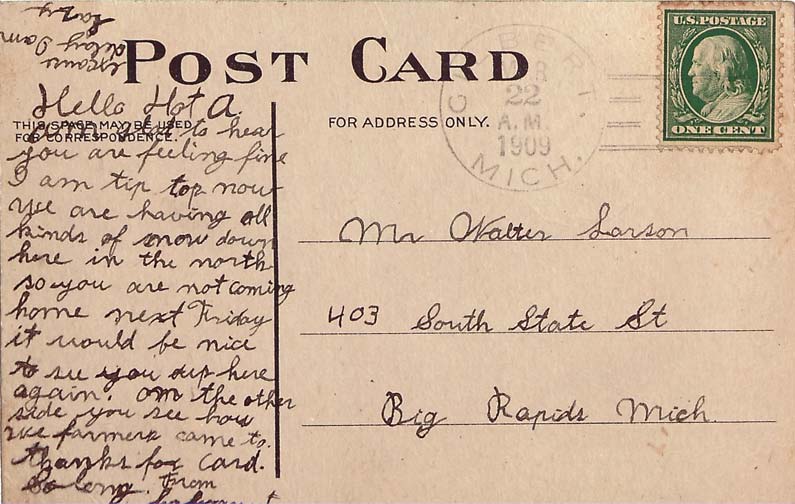 lazy
delay I am
POST CARD
THIS SPACE MAY BE USED
FOR CORRESPONDENCE.
FOR ADDRESS ONLY.
U.S. POSTAGE
ONE CENT
MAR
22
A.M.
1909
MICH.
Hello Hot A.
glad to hear
you are feeling fine
I am tip top now
We are having all
kinds of snow down
here in the north
so you are not coming
home next Friday
it would be nice
to see you up here
again. on the other
side you see how
we farmers came to.
thanks for card.
So long. From
Mr Walter Larson
403 South State St
Big Rapids Mich.